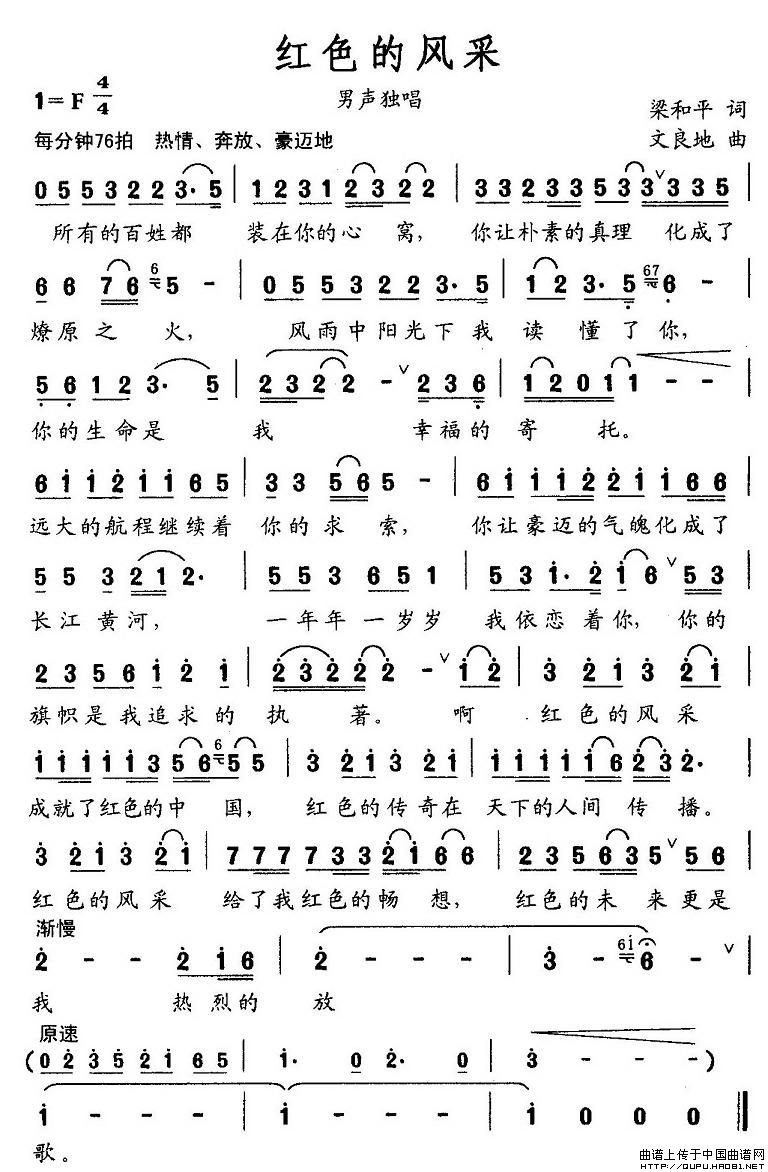 红色的风采
1=F 4/4
男声独唱
梁和平 词
每分钟76拍 热情、奔放、豪迈地
文良地 曲
0 5 5 3 2 2 3· 5 | 1 2 3 1 2 3 2 2 | 3 3 2 3 3 5 3 3 ∨ 3 3 3 5 |
所有的百姓都 装在你的心窝, 你让朴素的真理 化成了
6 6 7 6 6 5 - | 0 5 5 3 2 2 3· 5 | 1 2 3· 5 67 6 - |
燎原之火, 风雨中阳光下我 读懂了你,
5 6 1 2 3· 5 | 2 3 2 2 - ∨ 2 3 6 | 1 2 0 1 1 - - |
你的生命是 我 幸福的寄托。
6 1 1 2 1 1 6 5 | 3 3 5 6 5 - | 6 1 1 1 2 2 1 1 6 6 |
远大的航程继续着 你的求索, 你让豪迈的气魄化成了
5 5 3 2 1 2· | 5 5 3 6 5 1 | 5 3 1· 2 1 6 ∨ 5 3 |
长江黄河, 一年年一岁岁 我依恋着你,你的
2 3 5 6 1 2 1 | 2 3 2 2 2 - ∨ 1 2 | 3 2 1 3 2 1 |
旗帜是我追求的 执著。 啊 红色的风采
1 1 1 1 1 3 5 6 6 5 5 | 3 2 1 3 2 1 | 1 1 1 1 1 6 2 3 2· |
成就了红色的中国, 红色的传奇在 天下的人间 传播。
3 2 1 3 2 1 | 7 7 7 7 3 3 2 1 6 6 | 2 3 5 6 3 5 ∨ 5 6 |
红色的风采 给了我红色的畅想, 红色的未来更是
渐慢
2 - - 2 1 6 | 2 - - - | 3 - 61 6 - ∨ |
我 热烈的 放
原速
(0 2 3 5 2 1 6 5 | 1· 0 2· 0 | 3 - - -)
1 - - - | 1 - - - | 1 0 0 0 ‖
歌。
曲谱上传于中国曲谱网
HTTP://QUPU.HAO81.NET